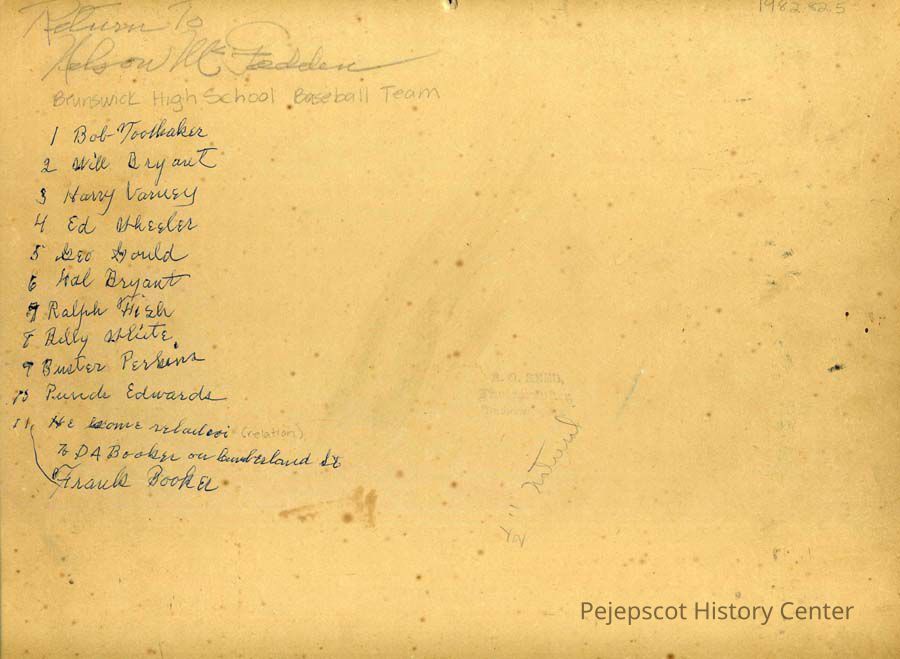 1982.82.5
Return To
Nelson McFadden
Brunswick High School Baseball Team
1 Bob Toothaker
2 Will Bryant
3 Harry Varney
4 Ed Wheeler
5 Geo Gould
6 Hal Bryant
7 Ralph High
8 Billy White
9 Buster Perkins
10 Punch Edwards
11 He some relation (relation)
To DA Booker on Cumberland St
Frank Booker
A. O. REED,
Pejepscot History Center